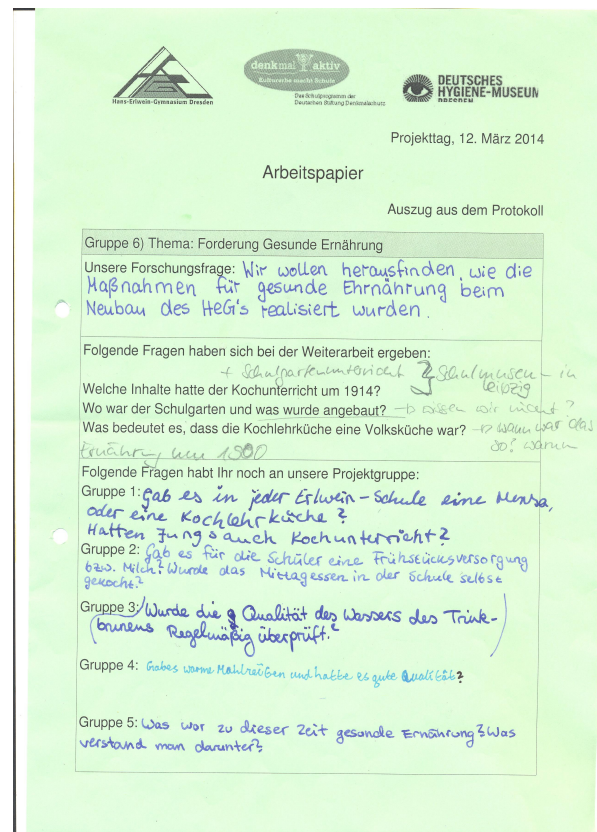 Hans-Erlwein-Gymnasium Dresden
denkmal aktiv
Kulturerbe macht Schule
Das Schulprogramm der
Deutschen Stiftung Denkmalschutz
DEUTSCHES
HYGIENE-MUSEUM
DRESDEN
Projekttag, 12. März 2014
Arbeitspapier
Auszug aus dem Protokoll
Gruppe 6) Thema: Forderung Gesunde Ernährung
Unsere Forschungsfrage: Wir wollen herausfinden, wie die
Maßnahmen für gesunde Ehrnährung beim
Neubau des HeG's realisiert wurden.
Folgende Fragen haben sich bei der Weiterarbeit ergeben:
+ Schulgartenunterricht } Schulmuseum in
Welche Inhalte hatte der Kochunterricht um 1914? Leipzig
Wo war der Schulgarten und was wurde angebaut? → wissen wir nicht?
Was bedeutet es, dass die Kochlehrküche eine Volksküche war? → wann war das
Ernährung um 1900 so? warum
Folgende Fragen habt Ihr noch an unsere Projektgruppe:
Gruppe 1: Gab es in jeder Erlwein-Schule eine Mensa,
oder eine Kochlehrküche?
Hatten Jungs auch Kochunterricht?
Gruppe 2: Gab es für die Schüler eine Frühstücksversorgung
bzw. Milch? Wurde das Mittagessen in der Schule selbst
gekocht?
Gruppe 3: (Wurde die Qualität des Wassers des Trink-
brunens Regelmäßig überprüft?)
Gruppe 4: Gabes warme Mahlzeiten und hatte es gute Qualität?
Gruppe 5: Was war zu dieser Zeit gesunde Ernährung? Was
verstand man darunter?